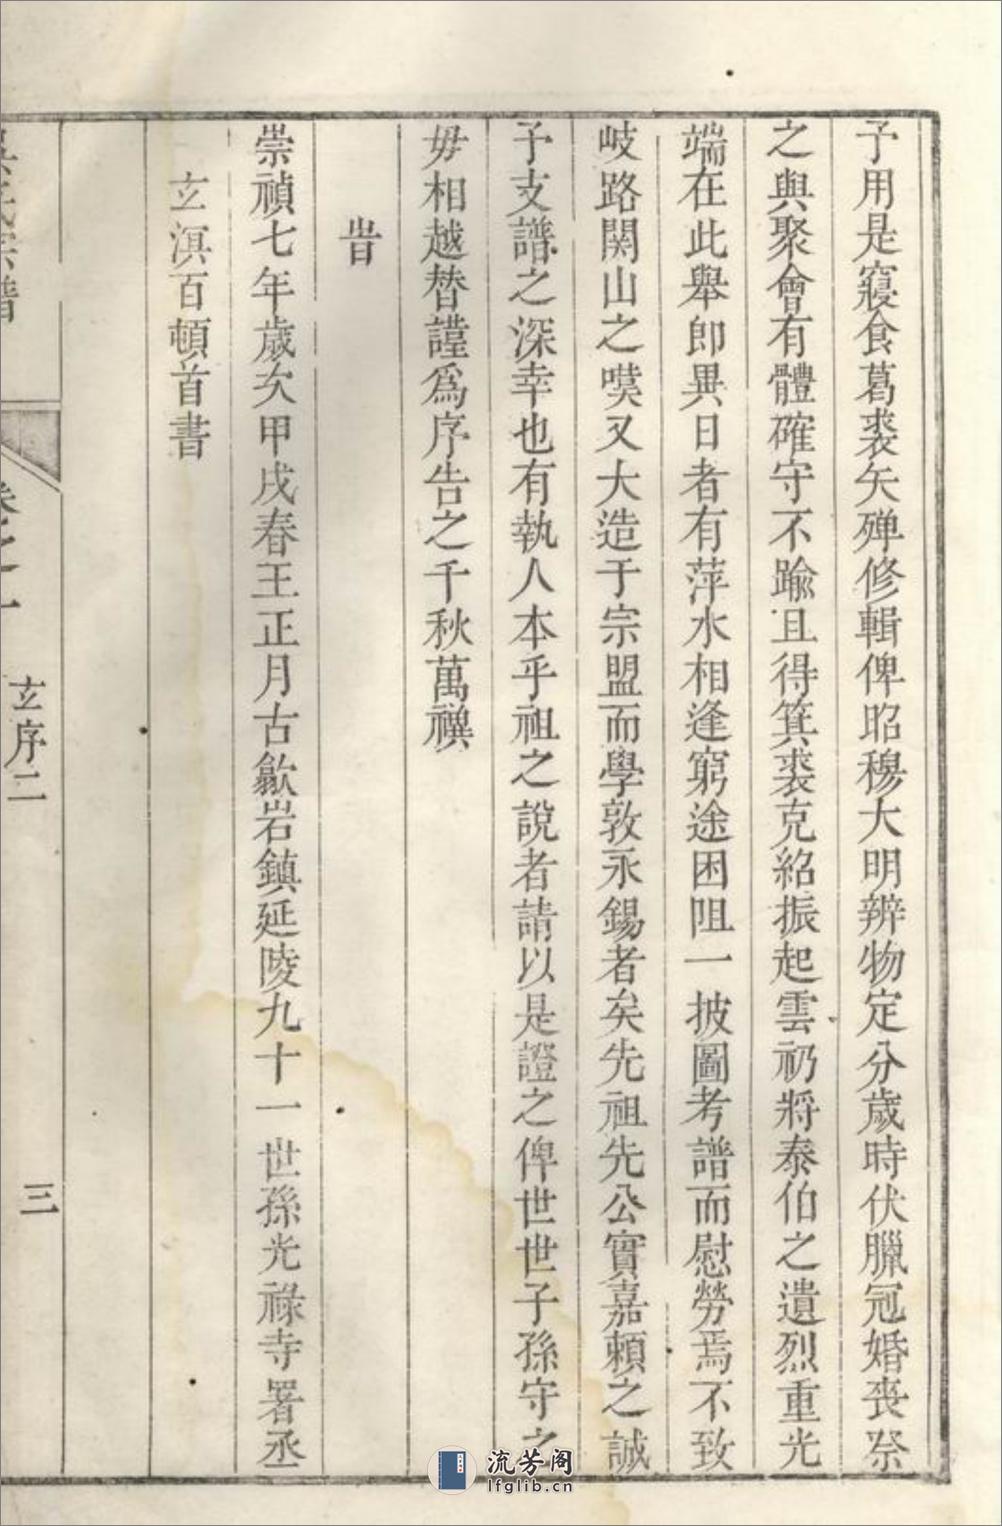 予用是寢食葛裘矢殫修輯俾昭穆大明辨物定分歲時伏臘冠婚喪祭
之與聚會有體確守不踰且得箕裘克紹振起雲礽將泰伯之遺烈重光
端在此舉卽異日者有萍水相逢窮途困阻一披圖考譜而慰勞焉不致
岐路関山之嘆又大造于宗盟而學敦永錫者矣先祖先公實嘉賴之誠
予支譜之深幸也有執人本乎祖之說者請以是證之俾世世子孫守之
毋相越替謹爲序告之千秋萬禩
旹
崇禎七年歲次甲戌春王正月古歙岩鎮延陵九十一世孫光祿寺署丞
玄溟百頓首書
吳氏宗譜
卷之一
玄序二
三
流芳阁
lfglib.cn